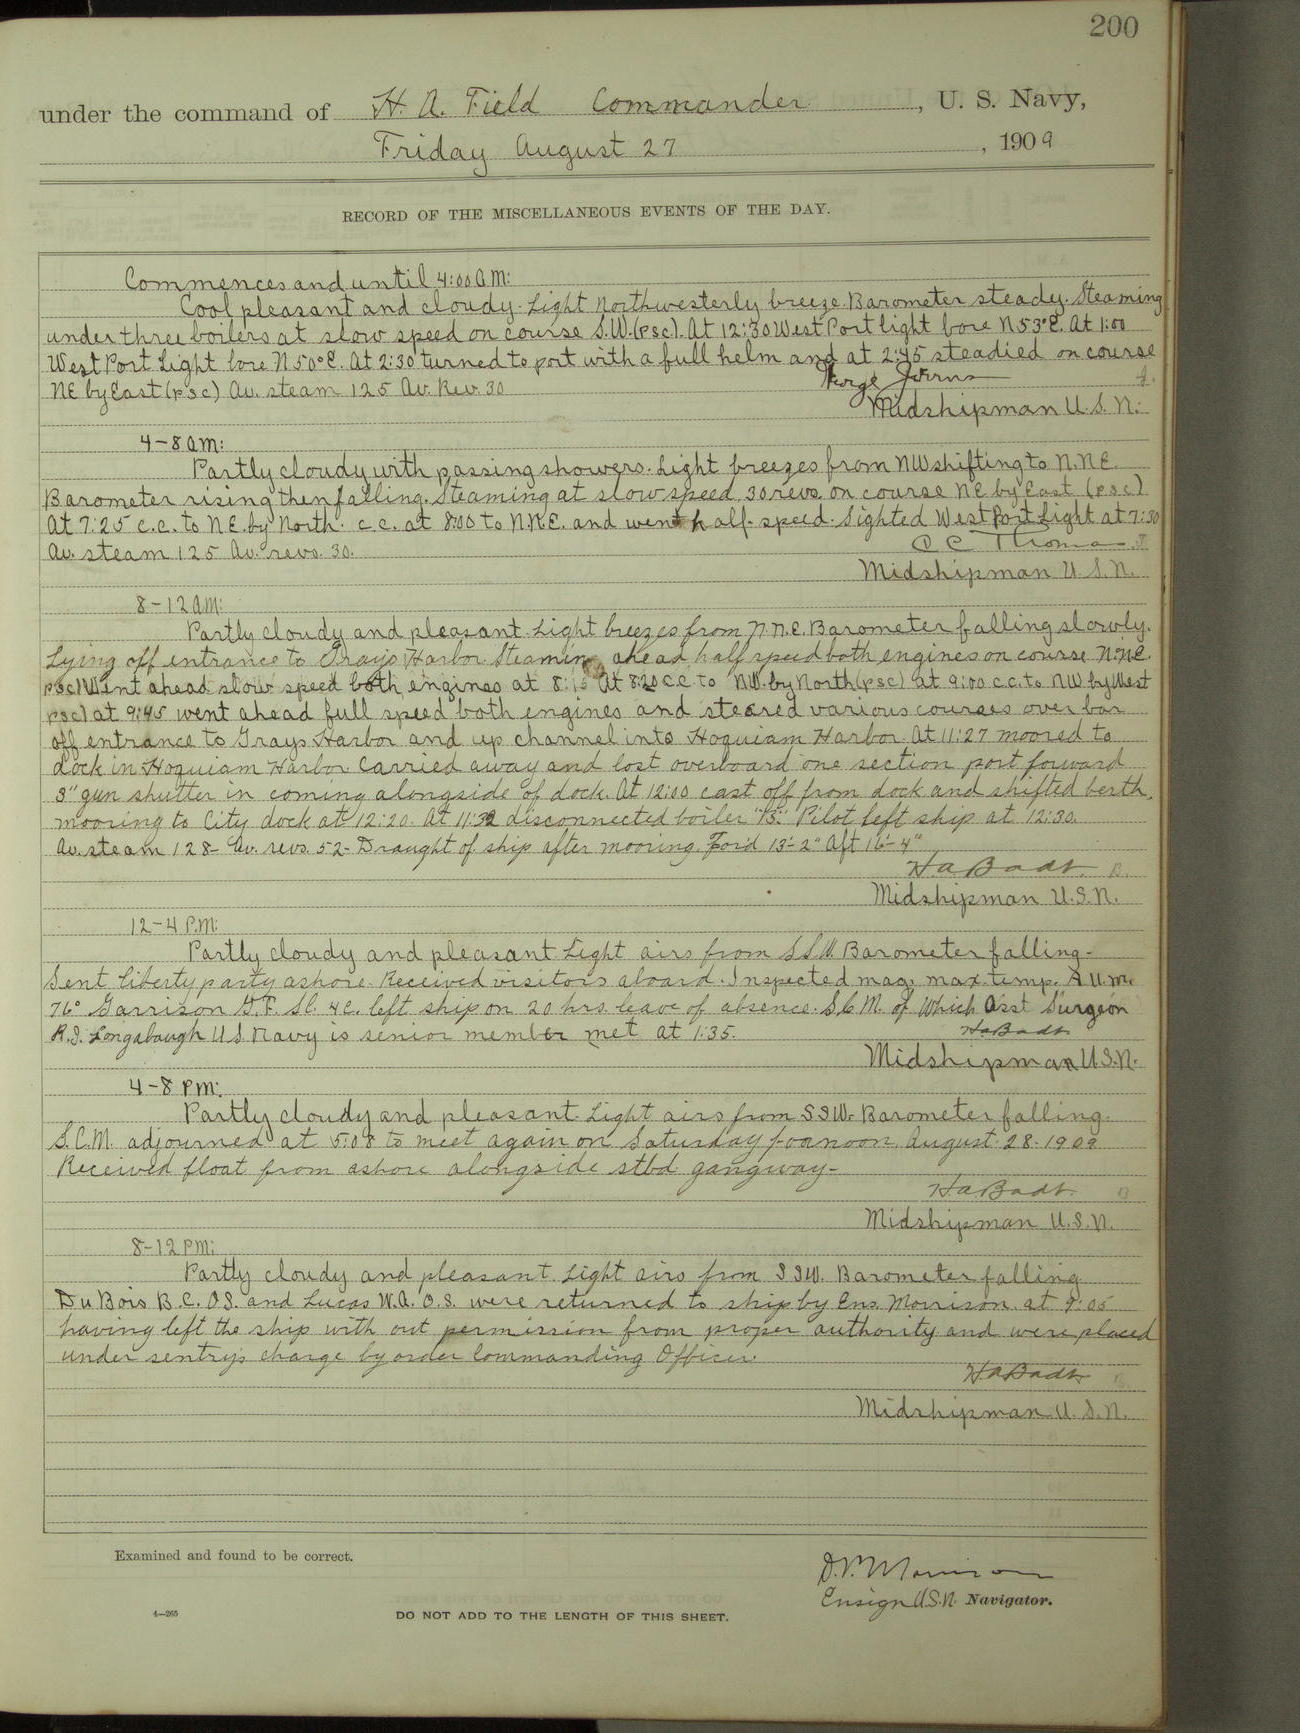 200
under the command of H. A. Field Commander, U. S. Navy,
Friday August 27, 1909
RECORD OF THE MISCELLANEOUS EVENTS OF THE DAY.
Commences and until 4:00 A.M:
Cool pleasant and cloudy. Light Northwesterly breeze. Barometer steady. Steaming
under three boilers at slow speed on course S.W. (psc). At 12:30 West Port light bore N53°E. At 1:00
West Port Light bore N50°E. At 2:30 turned to port with a full helm and at 2:45 steadied on course
NE by East (psc) Av. steam 125 Av. Rev. 30
Midshipman U.S.N.
4-8 am:
Partly cloudy with passing showers. Light breezes from NW shifting to N.N.E.
Barometer rising then falling. Steaming at slow speed, 30 revs. on course NE by East (psc)
At 7:25 c.c. to NE by North. c.c. at 8:00 to N.N.E. and went half speed. Sighted West Port Light at 7:30
Av. steam 125 Av. revs. 30.
C C Thomas
Midshipman U.S.N.
8-12 AM:
Partly cloudy and pleasant. Light breezes from N.N.E. Barometer falling slowly.
Lying off entrance to Grays Harbor. Steaming ahead half speed both engines on course N.N.E.
psc) Went ahead slow speed both engines at 8:15 At 8:20 c.c. to NW. by North (psc) at 9:00 c.c. to NW by West
psc) at 9:45 went ahead full speed both engines and steered various courses over bar
off entrance to Grays Harbor and up channel into Hoquiam Harbor. At 11:27 moored to
dock in Hoquiam Harbor. Carried away and lost overboard one section port forward
3" gun shutter in coming alongside of dock. At 12:00 cast off from dock and shifted berth,
mooring to City dock at 12:20. At 11:32 disconnected boiler "B". Pilot left ship at 12:30.
Av. steam 128- Av. revs. 52- Draught of ship after mooring. For'd 13'-2" Aft 16'-4"
H a Badt
Midshipman U.S.N.
12-4 P.M:
Partly cloudy and pleasant. Light airs from S.S.W. Barometer falling-
Sent liberty party ashore. Received visitors aboard. Inspected mag. max. temp.
76° Garrison G.F. Sc. 4c. left ship on 20 hrs. leave of absence. S.C.M. of Which Asst Surgeon
R.I. Longabaugh U.S. Navy is senior member met at 1:35.
H a Badt
Midshipman U.S.N.
4-8 PM:
Partly cloudy and pleasant. Light airs from SSW. Barometer falling.
S.C.M. adjourned at 5:08 to meet again on Saturday foanoon, August. 28-1909
Received float from ashore alongside stbd gangway-
H a Badt
Midshipman U.S.N.
8-12 PM:
Partly cloudy and pleasant. Light airs from SSW. Barometer falling
DuBois B.C. O.S. and Lucas W.A. O.S. were returned to ship by Ens. Morrison at 9:05
having left the ship with out permission from proper authority and were placed
under sentry's charge by order Commanding Officer.
H a Badt
Midshipman U.S.N.
Examined and found to be correct.
Morrison
Ensign U.S.N. Navigator.
4—265
DO NOT ADD TO THE LENGTH OF THIS SHEET.